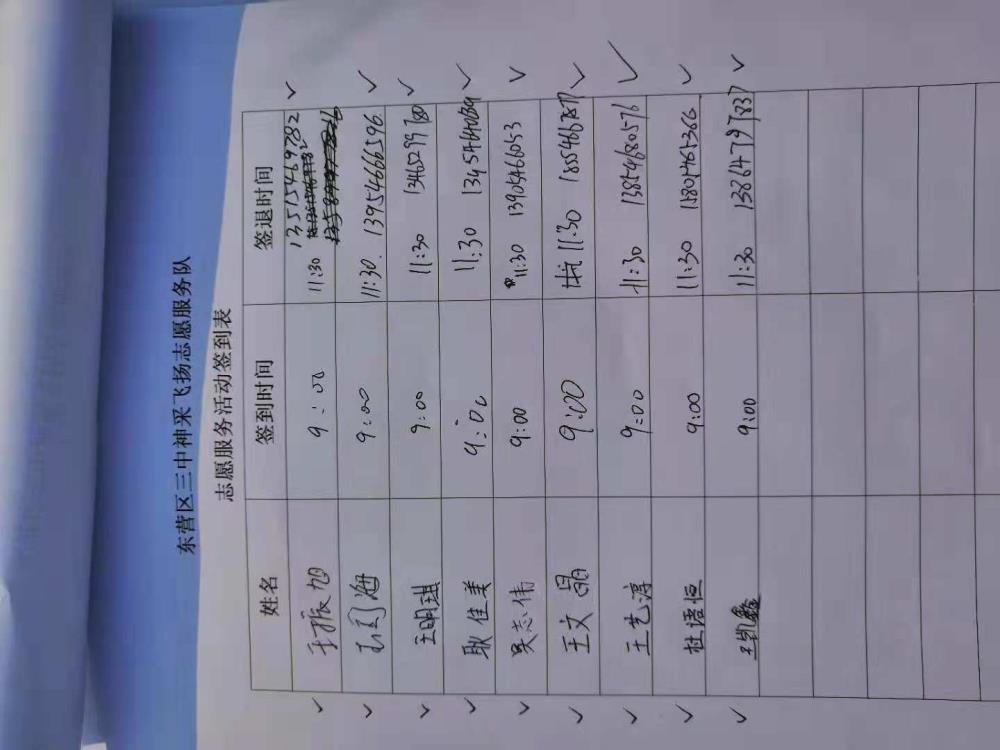 东营区三中神采飞扬志愿服务队
志愿服务活动签到表
姓名 签到时间 签退时间
于振旭 9:00 11:30 13515469782
9:00 11:30. 13954666596
王明琪 9:00 11:30
耿佳美 9:00 11:30
吴志伟 9:00 11:30 13905466053
王文晶 9:00 11:30
王艺淳 9:00 11:30 13854680576
杜语恒 9:00 11:30
王凯鑫 9:00 11:30